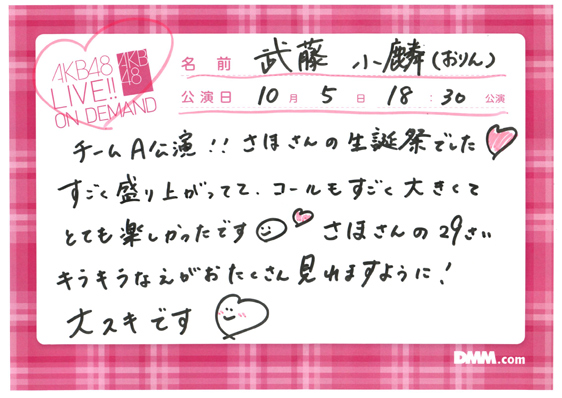 AKB48
LIVE!!
ON DEMAND
AKB
48
名前 武藤 小麟(おりん)
公演日 10月 5日 18:30公演
チームA公演!! さほさんの生誕祭でした
すごく盛り上がってて、コールもすごく大きくて
とても楽しかったです さほさんの29さい
キラキラなえがおたくさん見れますように!
大スキです
DMM.com